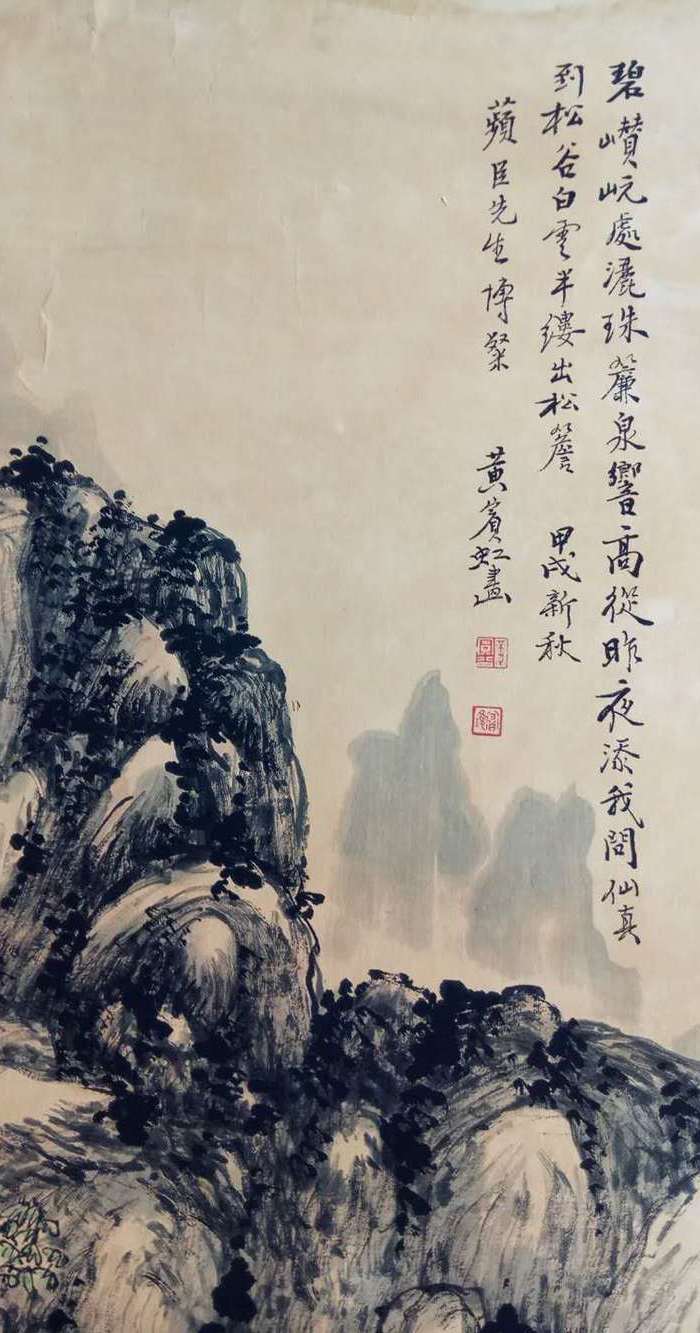 碧巑岏處灑珠簾泉響高從昨夜添我問仙真
到松谷白雲半縷出松簷 甲戌新秋
蘋臣先生博粲 黃賓虹畫